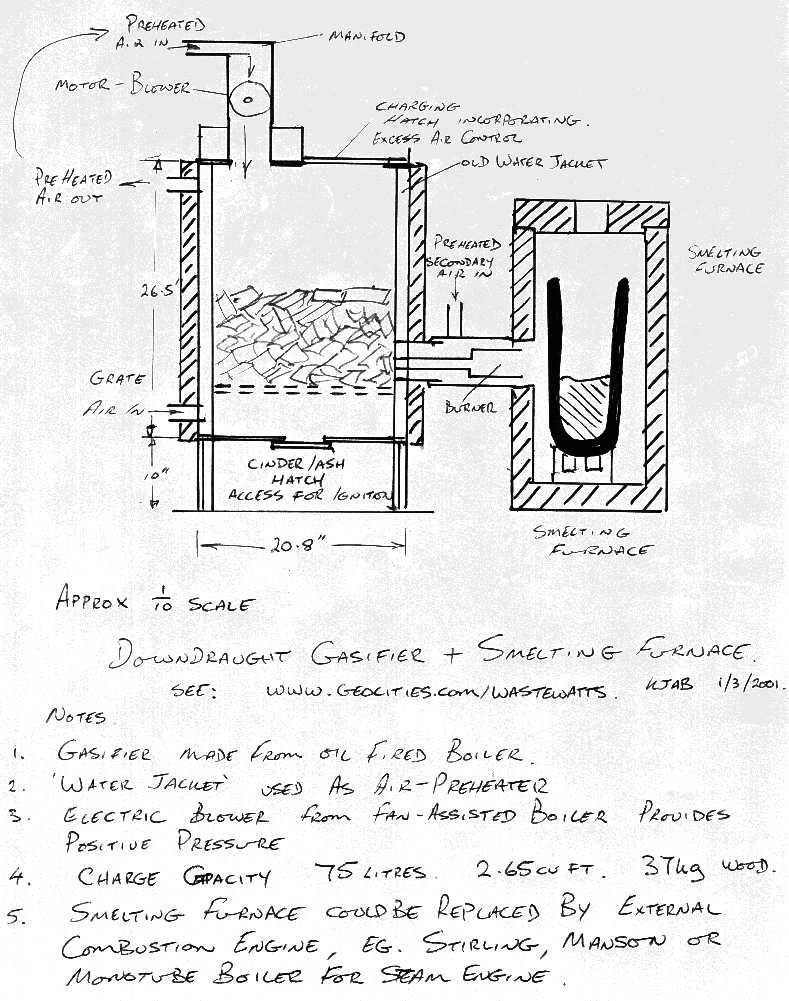 PREHEATED
AIR IN
MANIFOLD
MOTOR-BLOWER
CHARGING
HATCH INCORPORATING.
EXCESS AIR CONTROL
OLD WATER JACKET
PREHEATED
AIR OUT
PREHEATED
SECONDARY
AIR IN
SMELTING
FURNACE
26.5'
GRATE
AIR IN
BURNER
10"
CINDER/ASH
HATCH
ACCESS FOR IGNITION
20.8"
SMELTING
FURNACE
APPROX 1/10 SCALE
DOWNDRAUGHT GASIFIER + SMELTING FURNACE.
SEE: WWW.GEOCITIES.COM/WASTEWATTS. KJAB 1/3/2001.
NOTES.
1. GASIFIER MADE FROM OIL FIRED BOILER.
2. 'WATER JACKET' USED AS AIR-PREHEATER
3. ELECTRIC BLOWER FROM FAN-ASSISTED BOILER PROVIDES
POSITIVE PRESSURE
4. CHARGE CAPACITY 75 LITRES. 2.65 CU FT. 37kg WOOD.
5. SMELTING FURNACE COULD BE REPLACED BY EXTERNAL
COMBUSTION ENGINE, EG. STIRLING, MANSON OR
MONOTUBE BOILER FOR STEAM ENGINE.